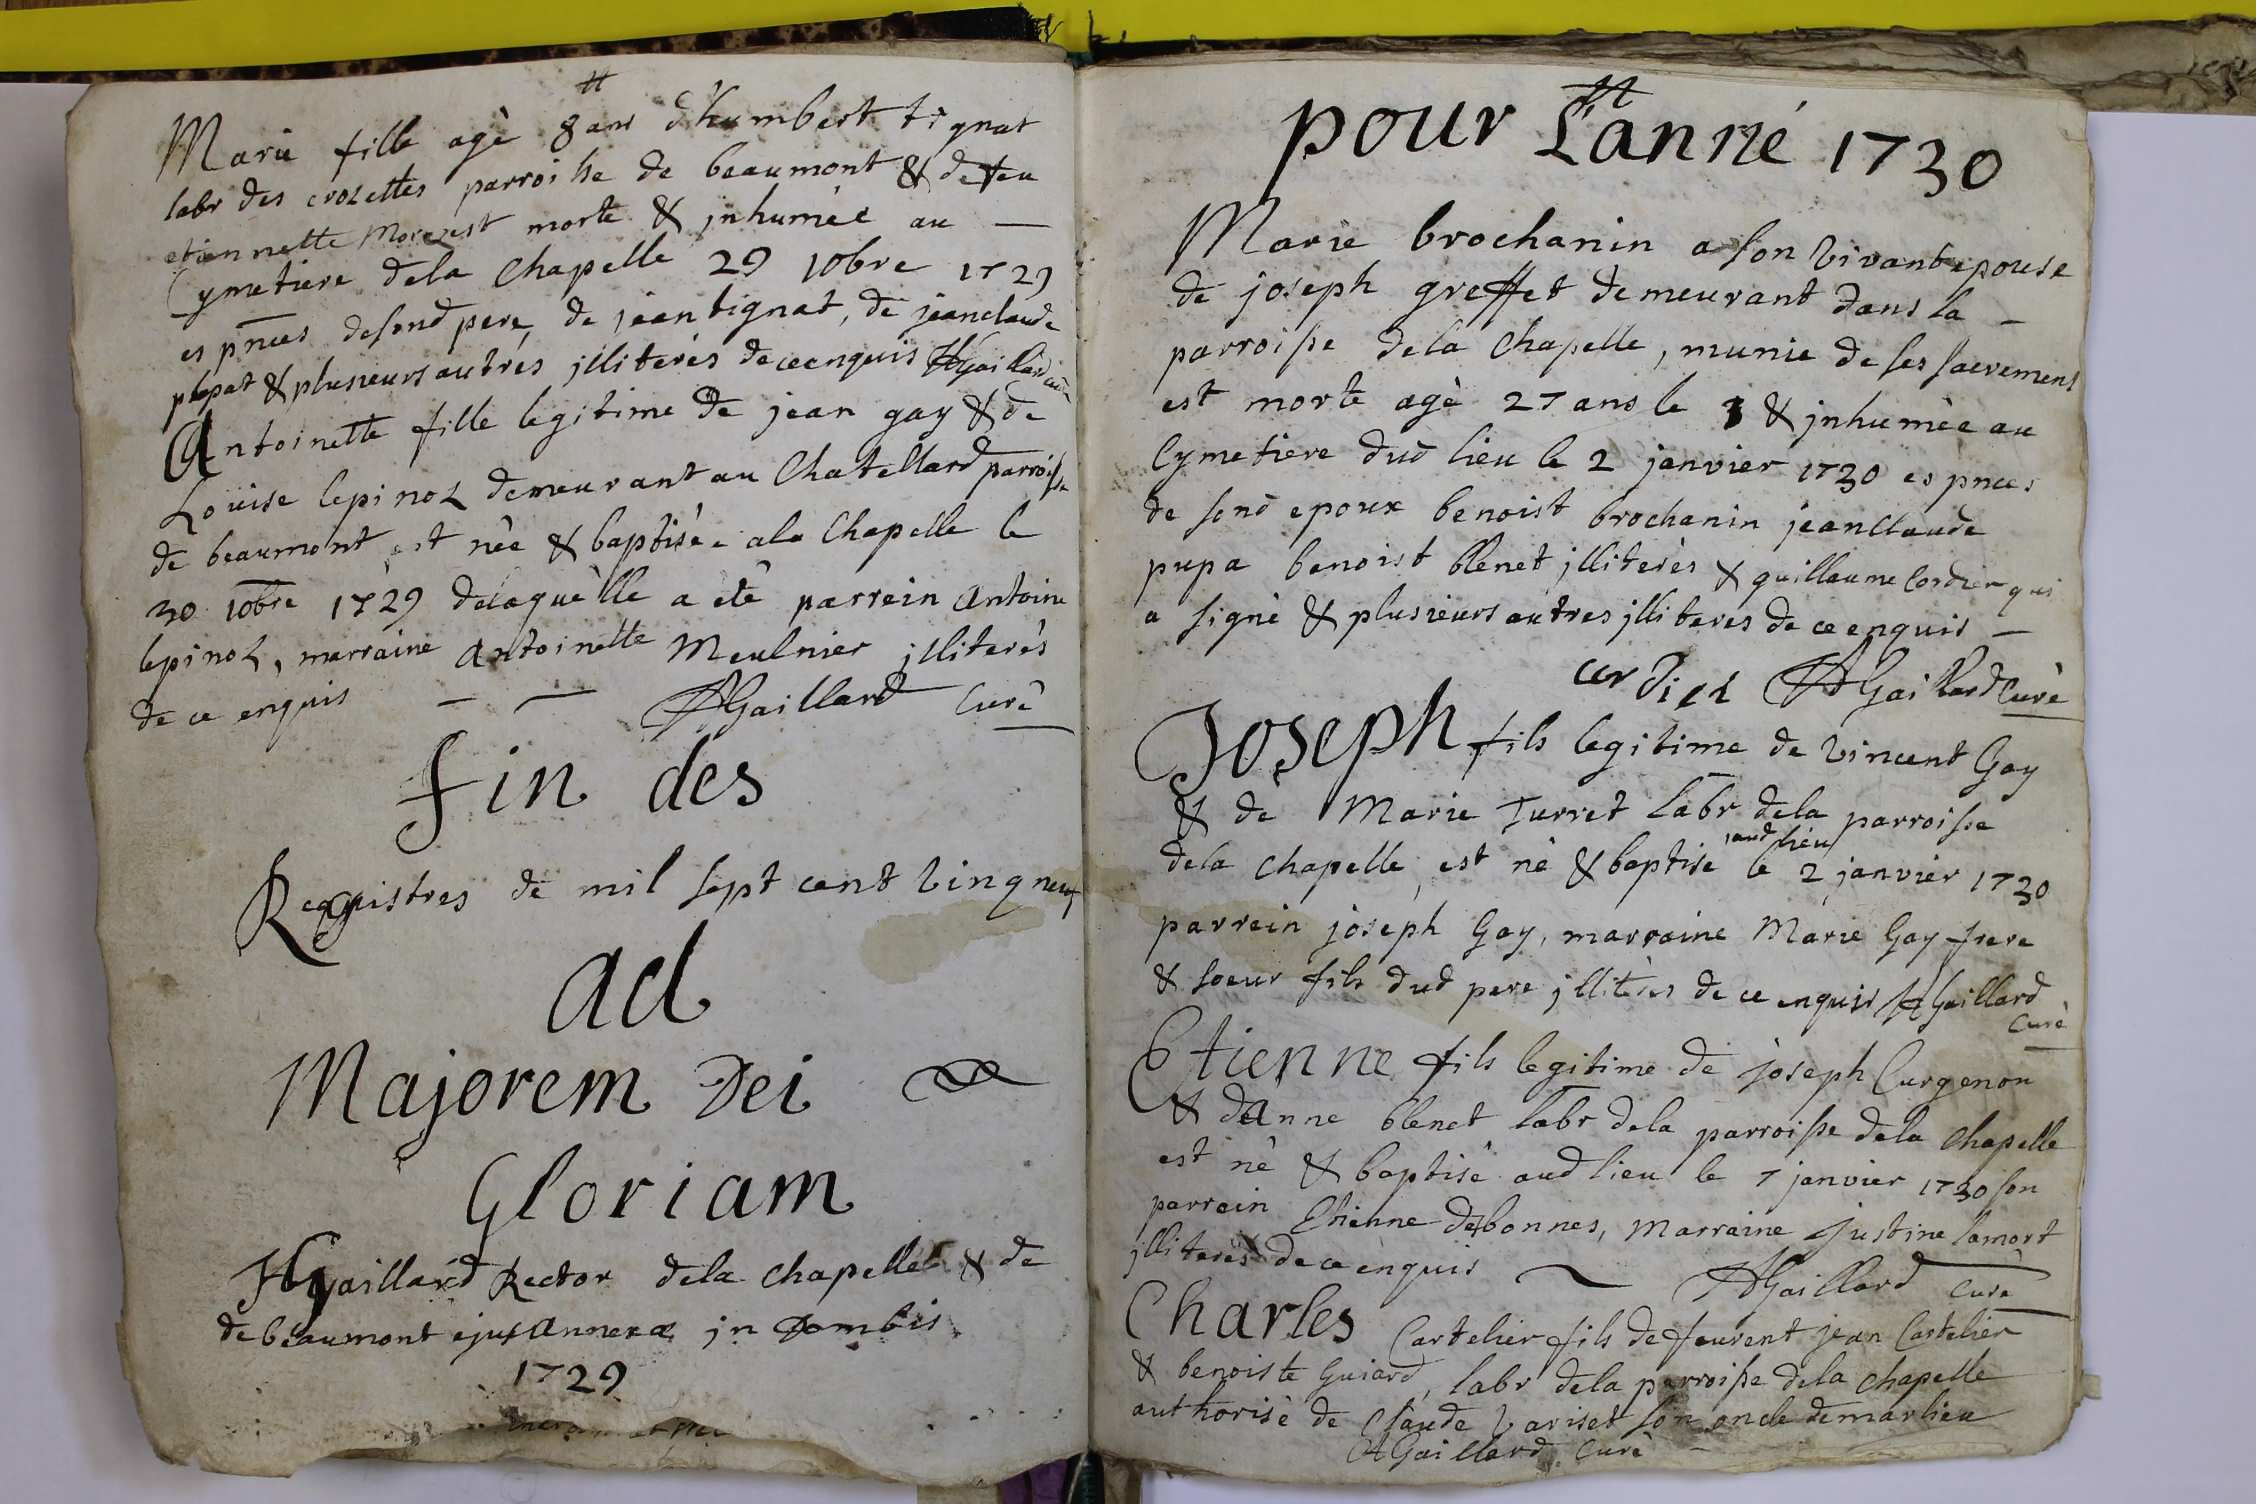 Marie fille agè 8 ans d'humbert tignat
labr des crozettes parroisse de beaumont & defeu
etiennette Morezest morte & jnhumèe au —
Cymetiere dela Chapelle 29 10bre 1729
es pnces desond pere, de jean tignat, de jeanclaude
plepat & plusieurs autres jlliterès deceenquis HGaillard curè
Antoinette fille legitime de jean gay & de
Loüise lepinoz demeurant au Chatellard parroisse
de beaumont est nèe & baptisèe ala Chapelle le
30 10bre 1729 delaquèlle a etè parrein Antoine
lepinoz, marraine Antoinette Meulnier jlliterès
de ce enquis — — HGaillard Curè
fin des
Registres de mil sept cent vingneuf
ad
Majorem Dei
Gloriam
HGaillard Rector dela Chapelle & de
de beaumont ejus annexæ jn Dombis
1729
pour L'anné 1730
Marie brochanin a son vivant epouse
de joseph greffet demeurant dans la —
parroisse dela Chapelle, munie de ses sacremens
est morte agè 27 ans le 1 & jnhumèe au
Cymetiere dud lieu le 2 janvier 1730 es pnces
de sond epoux benoist brochanin jeanClaude
pupa benoist blenet jlliterès & guillaume Cordier qui
a signè & plusieurs autres jlliteres de ce enquis —
cordier HGaillard Curè
Joseph fils legitime de vincent Gay
& de Marie Turret labr dela parroisse
dela chapelle, est nè & baptise aud lieu le 2 janvier 1730
parrein joseph Gay, marraine Marie Gay frere
& soeur fils dud pere jlliterès de ce enquis HGaillard
Curè
Etienne fils legitime de joseph Curgenou
& d'Anne blenet labr dela parroisse dela Chapelle
est nè & baptisè aud lieu le 7 janvier 1730 son
parrain Etienne desbonnes, Marraine Justine lamort
jlliterès de ce enquis HGaillard Curè
Charles Cartelier fils defeurent jean Cartelier
& benoiste Guiard, labr dela parroisse dela chapelle
authorisè de Claude variset son oncle demarlieu
HGaillard Curè —